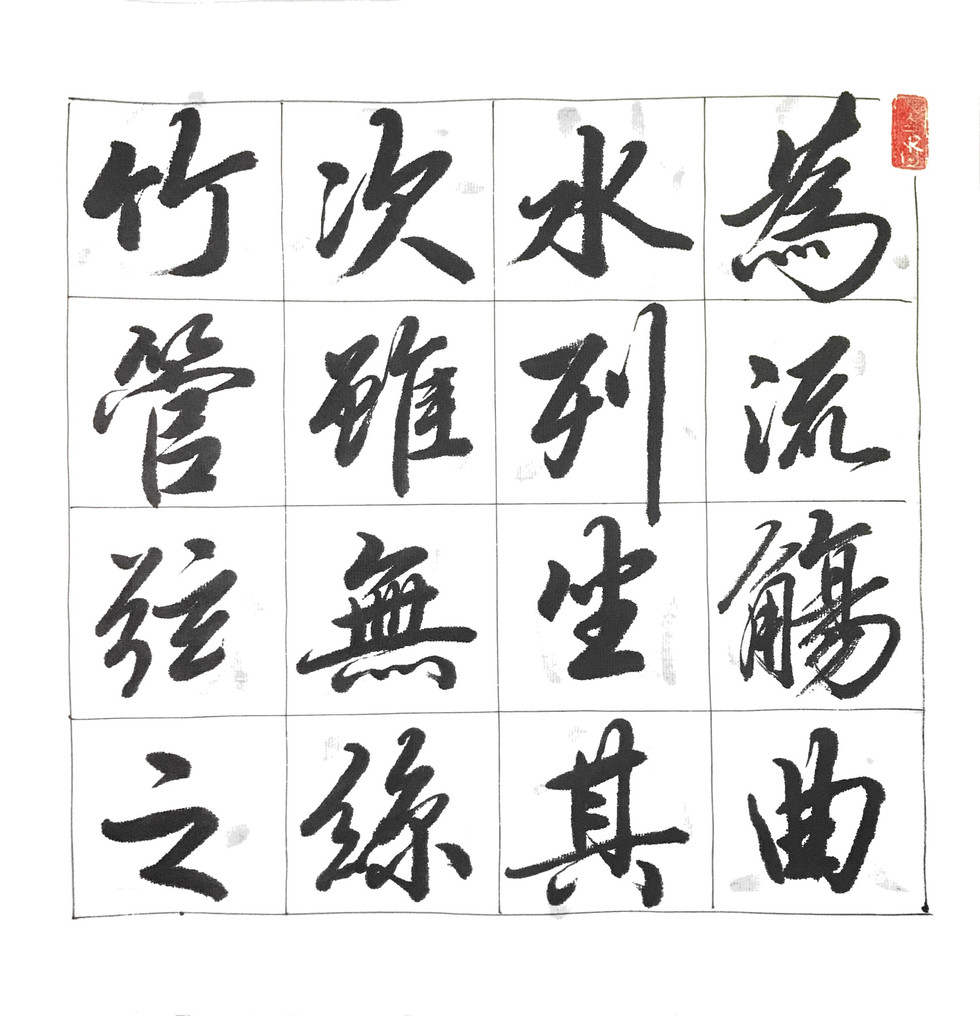 為流觴曲
水列坐其
次雖無絲
竹管弦之